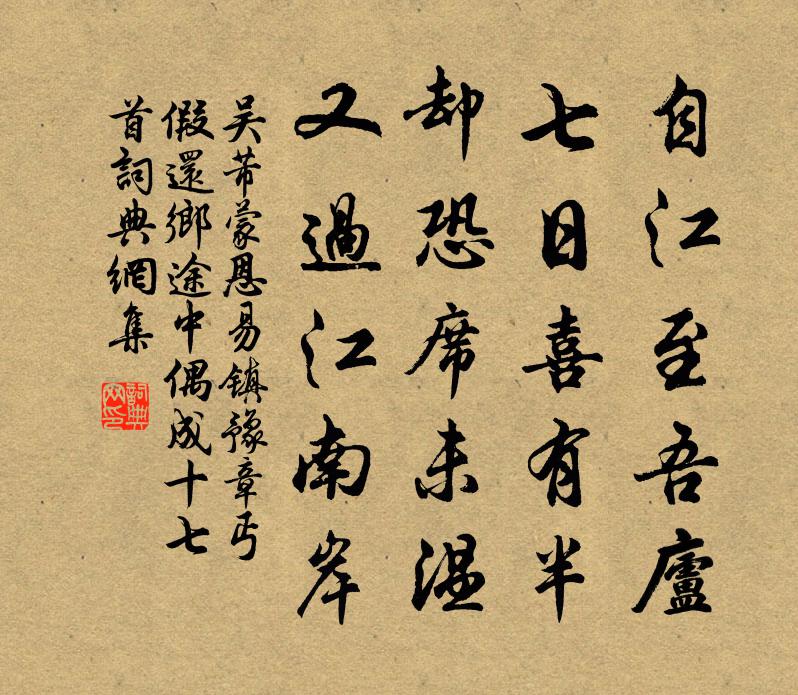 自江至吾廬
七日喜有半
却恐席未温
又過江南岸
吴芾蒙恩易鎮豫章丐
假還鄉途中偶成十七
首詞典網集
詞典
网印